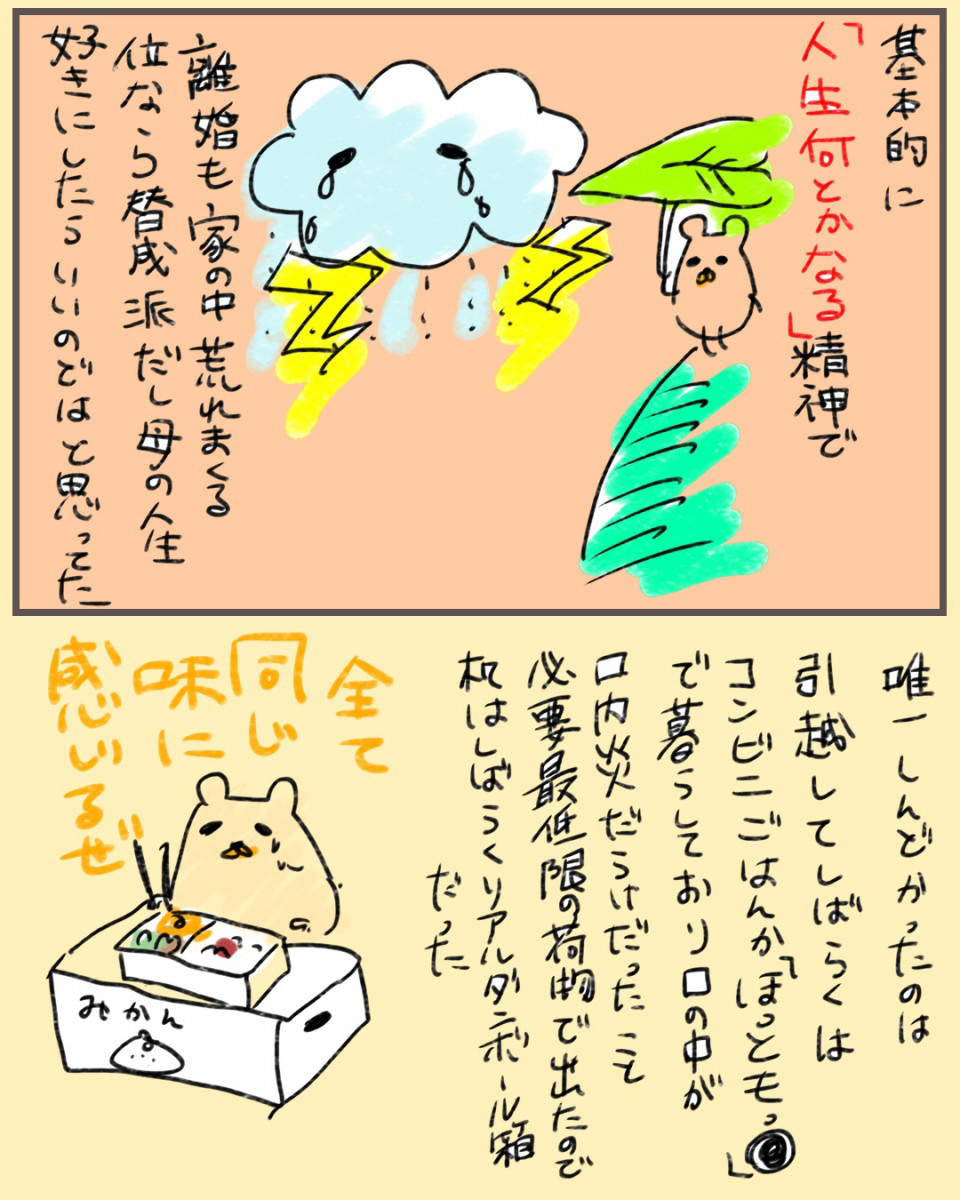 基本的に
「人生何とかなる」精神で
離婚も家の中荒れまくる
位なら賛成派だし母の人生
好きにしたらいいのではと思ってた
唯一しんどかったのは
引越してしばらくは
コンビニごはんか「ほっともっ
」
で暮らしており口の中が
口内炎だらけだったこと
必要最低限の荷物で出たので
机はしばらくリアルダンボール箱
だった
全て
同じ
味に
感じるぜ
みかん